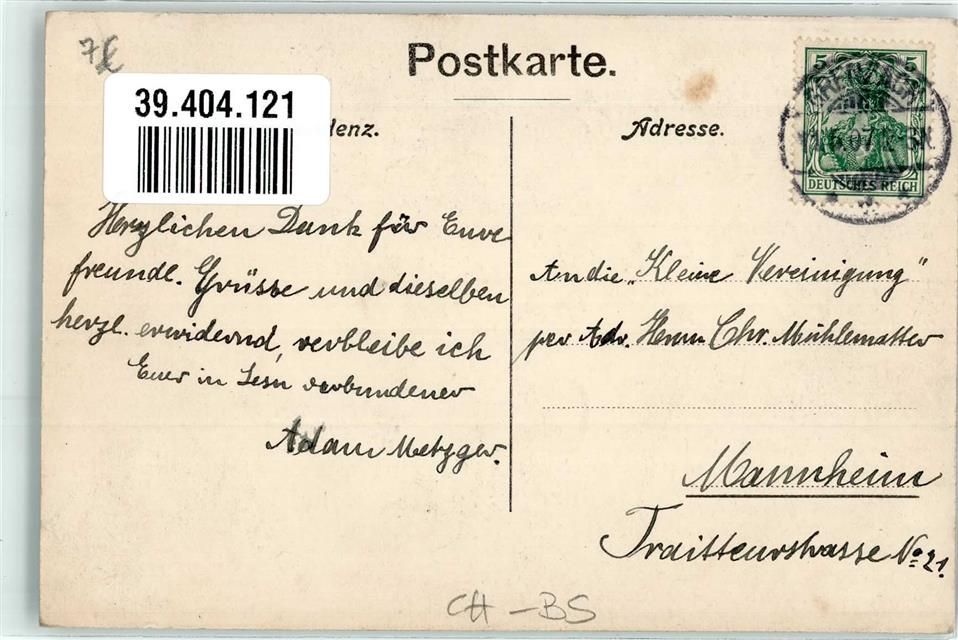 7€
Postkarte.
39.404.121
denz.
Adresse.
5 5
07
DEUTSCHES REICH
Herzlichen Dank für Eure
freundl. Grüsse und dieselben
herzl. erwidernd, verbleibe ich
Euer in Jesu verbundener
Adam Metzger.
An die „Kleine Vereinigung"
per Adr. Herrn Chr. Mühlematter
Mannheim
Traitteurstrasse No 21.
CH - BS